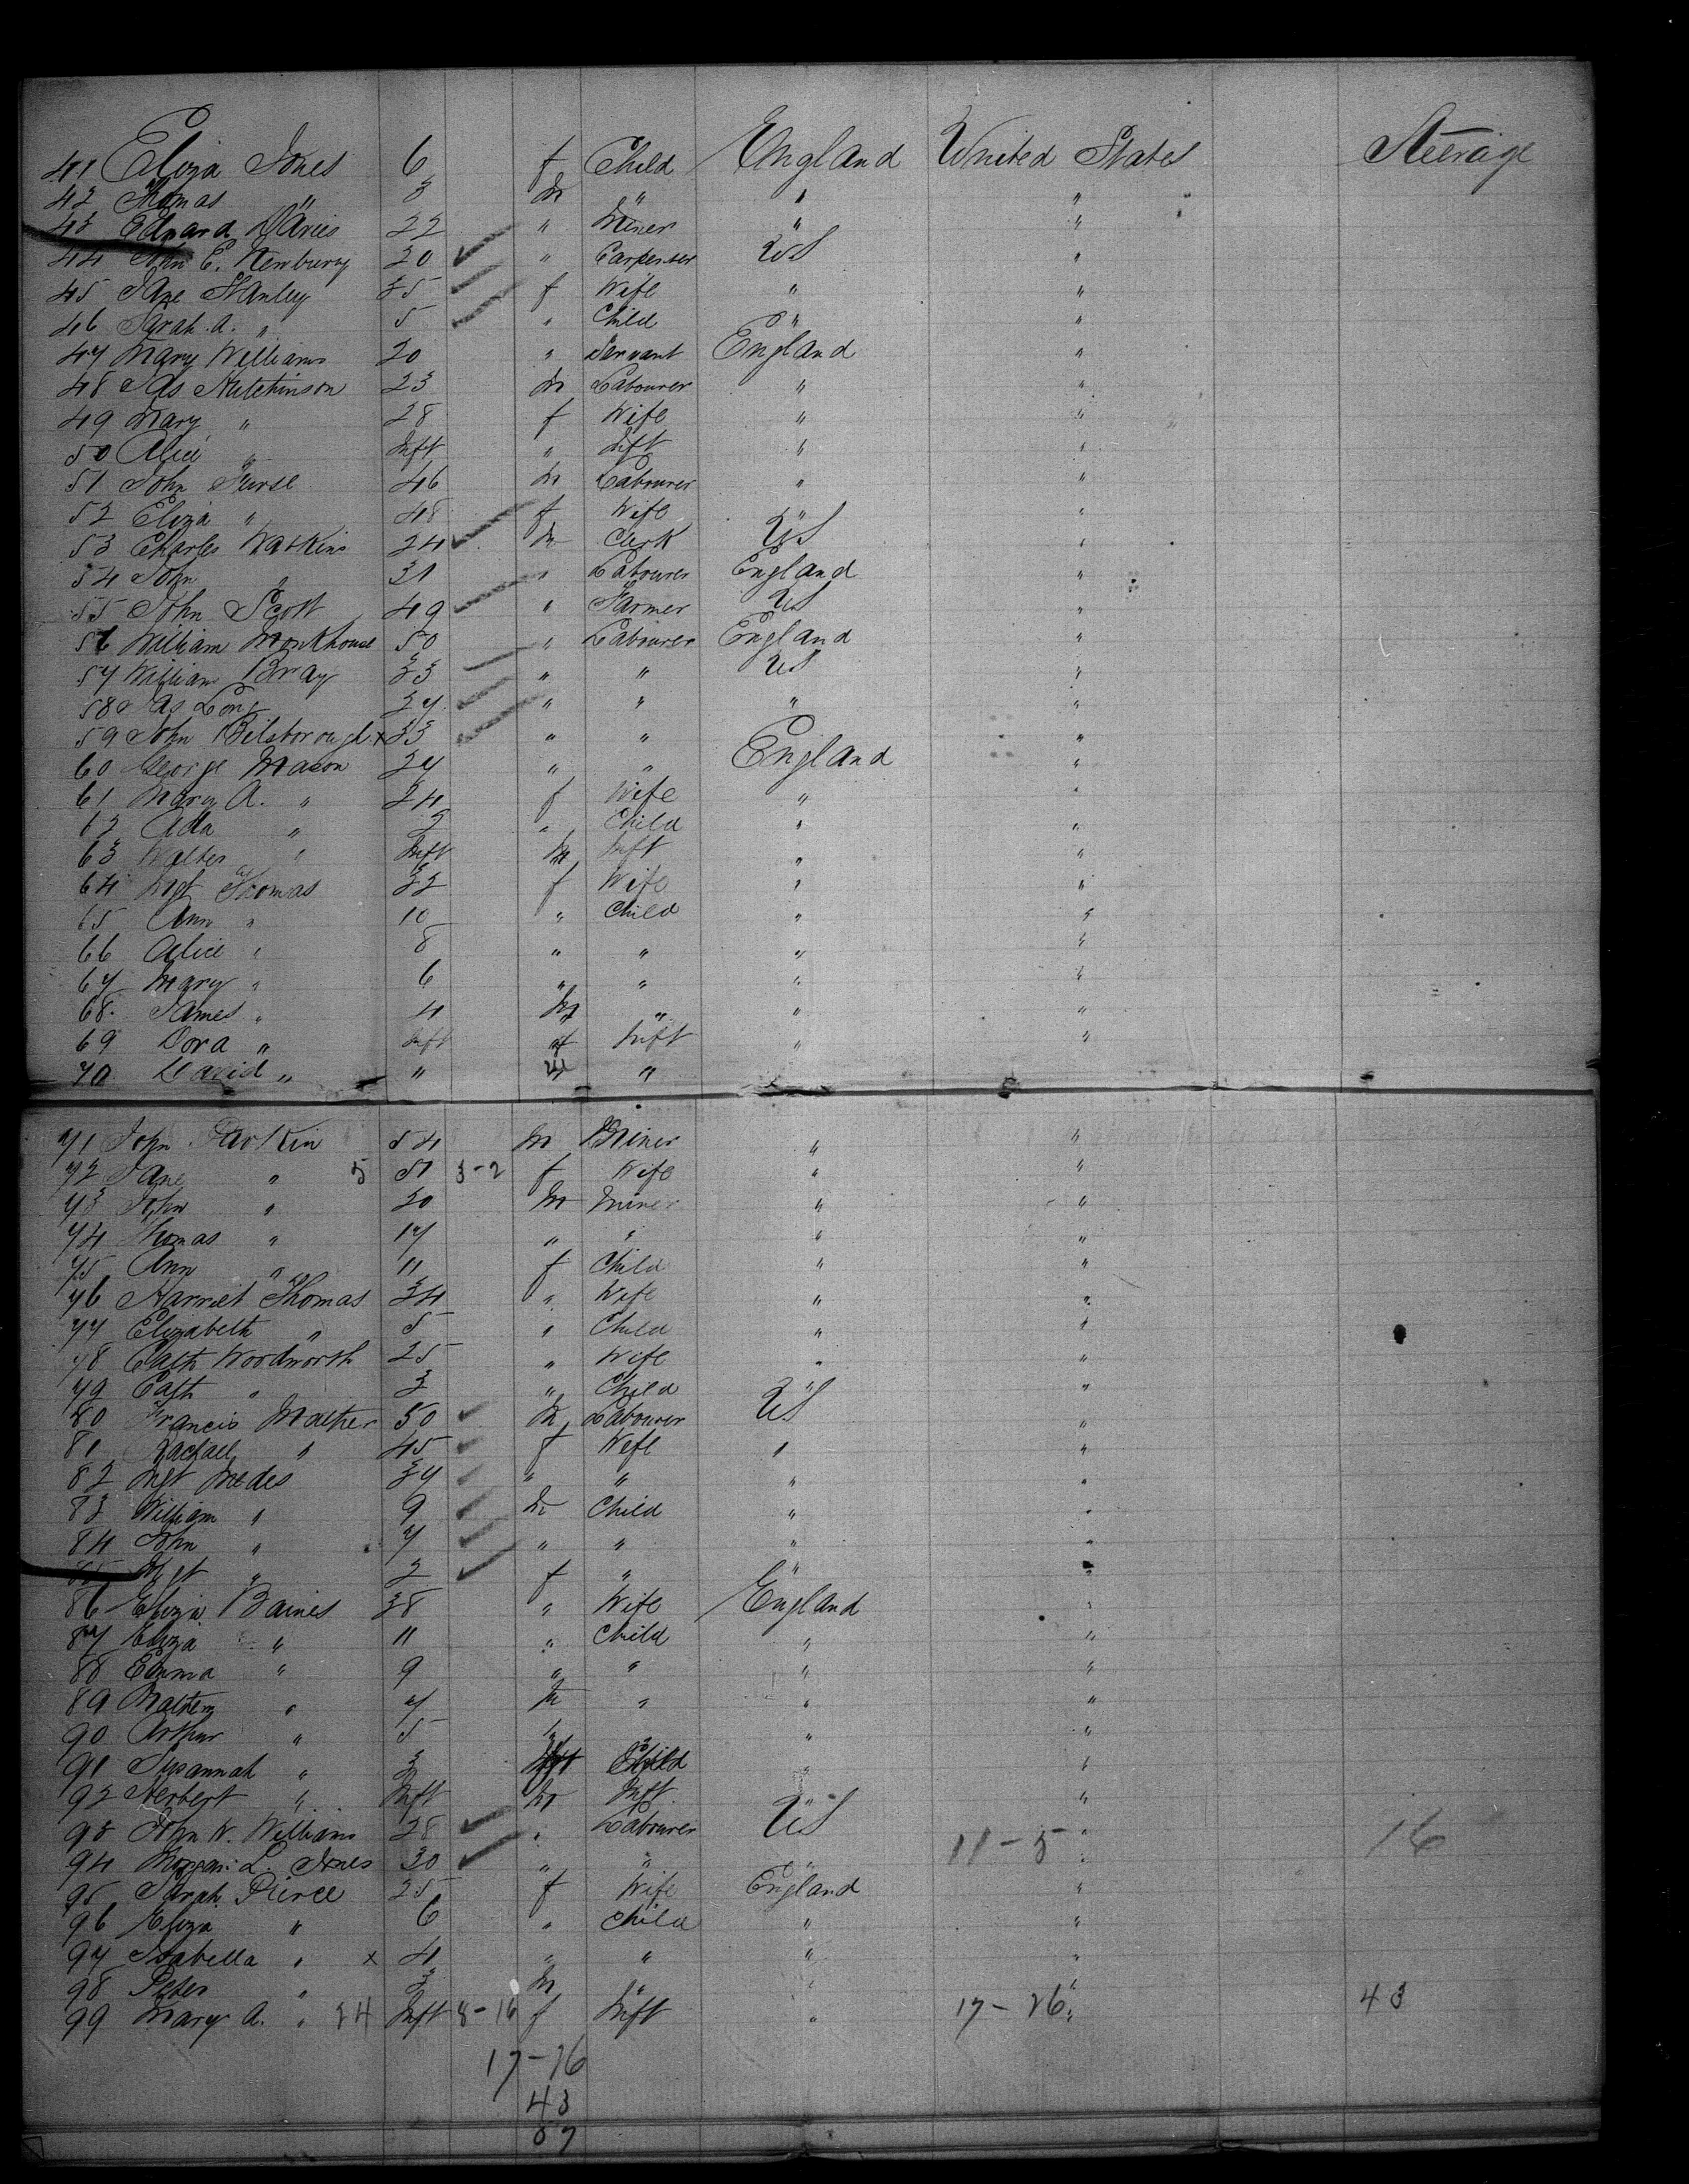 41 Eliza Jones 6 f Child England United States Steerage
42 Thomas " 3 m " " "
43 Edward Davies 22 " Miner " "
44 John E. Newbury 20 " Carpenter US "
45 Jane Stanley 35 f Wife " "
46 Sarah. A. " 5 " Child " "
47 Mary Williams 20 " Servant England "
48 Jas Hutchinson 23 m Labourer " "
49 Mary " 28 f Wife " "
50 Alice " Inft " Inft " "
51 John 46 m Labourer " "
52 Eliza " 48 f Wife " "
53 Charles Watkins 24 m Clerk US "
54 John " 31 " Labourer England "
55 John Scott 49 " Farmer US "
56 William Monkhouse 50 " Labourer England "
57 William Bray 33 " " US "
58 Jas Long 27 " " " "
59 John Bilsborough x 33 " " "
60 George Mason 27 " " England "
61 Mary A. " 24 f Wife " "
62 Ada " 2 " Child " "
63 Walter " Inft m Inft " "
64 Mgt Thomas 32 f Wife " "
65 Ann " 10 " Child " "
66 Alice " 8 " " " "
67 Mary " 6 " " " "
68. James " 4 m " " "
69 Dora " Inft f Inft " "
70 David " " m "
71 John Parkin 54 m Miner " "
72 Jane " 5 51 3-2 f Wife " "
73 John " 20 m Miner " "
74 Thomas " 17 " " " "
75 Ann " 11 f Child " "
76 Harriet Thomas 34 " Wife " "
77 Elizabeth " 5 " Child " "
78 Cath Woodworth 25 " Wife " "
79 Cath " 3 " Child " "
80 Francis Mather 50 m Labourer US "
81 Rachael " 45 f Wife " "
82 Mgt Medes 37 " " " "
83 William " 9 m Child " "
84 John " 7 " " " "
85 Mgt " 2 f " " "
86 Eliza Baines 38 " Wife England "
87 Eliza " 11 " Child " "
88 Emma " 9 " " " "
89 " 7 m " " "
90 Arthur " 5 " " " "
91 Susannah " 3 Child " "
92 Herbert " Inft m Inft. " "
93 John W. Williams 28 " Labourer US "
11-5 16
94 Morgan L. Jones 30 " " " "
95 Sarah Pierce 25 f Wife England "
96 Eliza " 6 " Child " "
97 Isabella " x 4 " " " "
98 Peter " 3 m " " "
99 Mary A. " 24 Inft 8-16 f Inft " 17-26 " 43
17-26
43
57